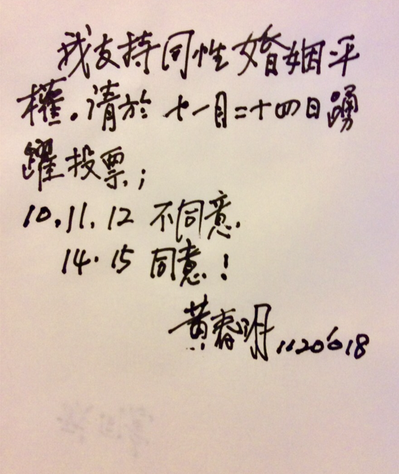 我支持同性婚姻平
權。請於十一月二十四日踴
躍投票;
10.11.12 不同意.
14.15 同意!
黃春明